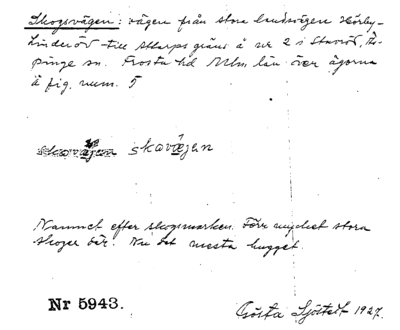 Skogsvägen: vägen från stora landsvägen Hörby-
Linderöd till Starps gräns å nr 2 i Stavröd, Ä-
spinge sn. Frosta hd Mlm. län över ägorna
å fig. num. 5
skavägen
Namnet efter skogsmarken. Förr mycket stora
skogar där. Nu det mesta hugget.
Nr 5943.
Gösta Sjöstedt 1927.